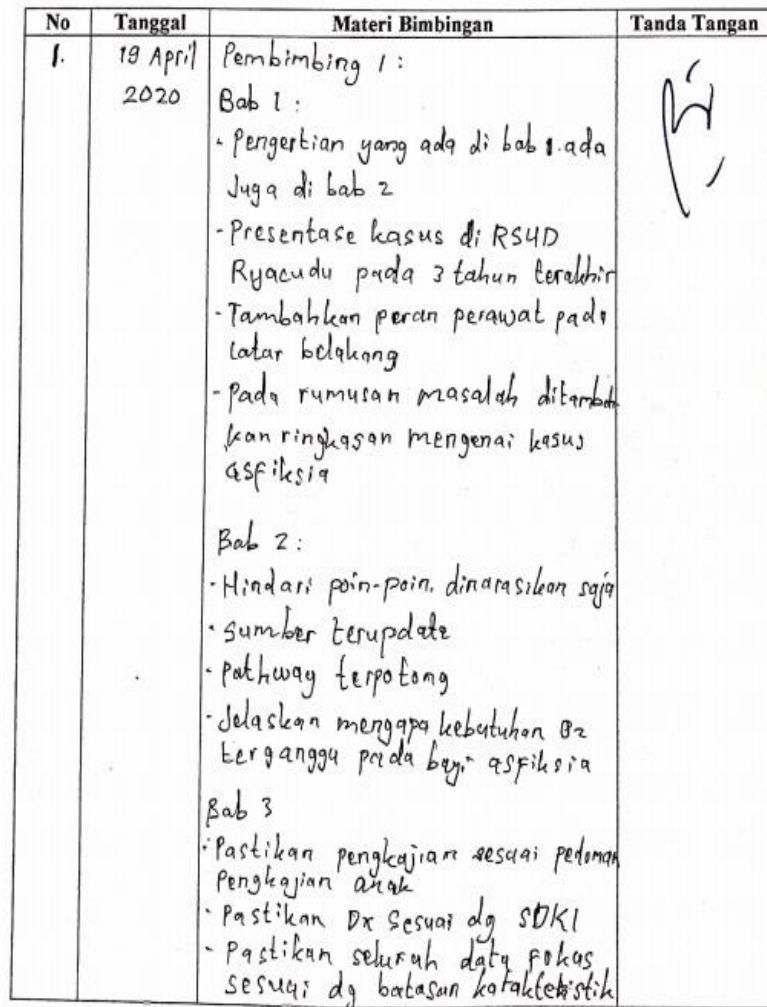 No Tanggal Materi Bimbingan Tanda Tangan
1. 19 April Pembimbing 1 :
2020 Bab 1 :
- Pengertian yang ada di bab 1 ada
Juga di bab 2
- Presentase kasus di RSUD
Ryacudu pada 3 tahun terakhir
- Tambahkan peran perawat pada
latar belakang
- Pada rumusan masalah ditambah
kan ringkasan mengenai kasus
asfiksia
Bab 2 :
- Hindari poin-poin. dinarasikan saja
- Sumber terupdate
- Pathway terpotong
- Jelaskan mengapa kebutuhan O2
terganggu pada bayi asfiksia
Bab 3
- Pastikan pengkajian sesuai pedoman
Pengkajian anak
- Pastikan Dx Sesuai dg SDKI
- Pastikan seluruh data fokus
sesuai dg batasan karakteristik